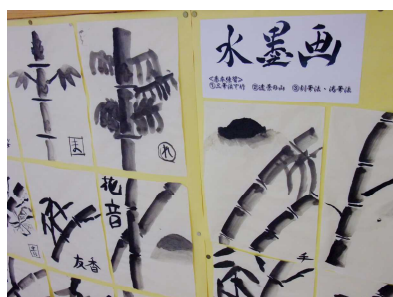 水墨画
<基本練習>
①三筆法で竹 ②遠景の山 ③刻筆法・偶筆法
ま
れ
花音
友香